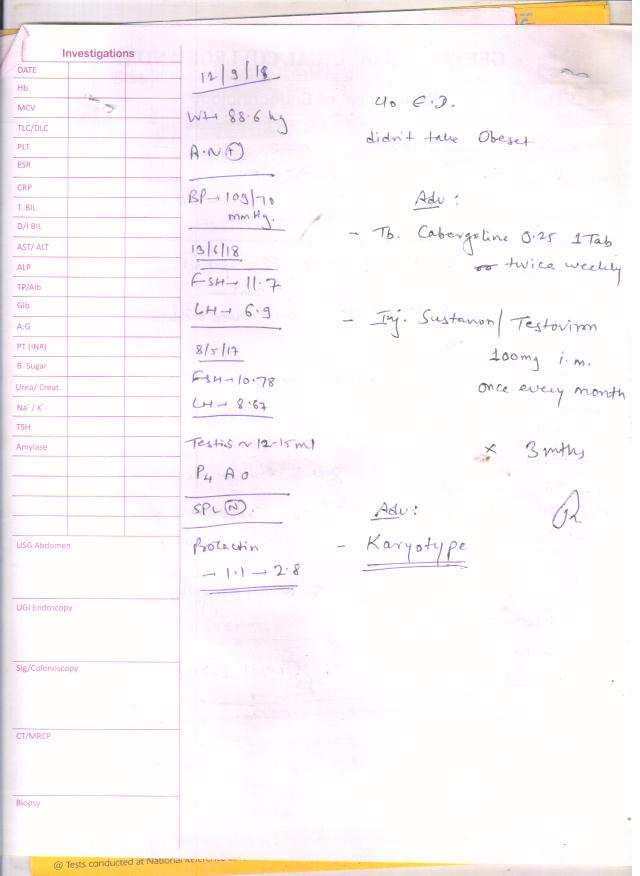 Investigations
DATE
Hb.
MCV
TLC/DLC
PLT
ESR
CRP
T. BIL
D/I BIL
AST/ ALT
ALP
TP/Alb
Glb.
A:G
PT (INR)
B. Sugar
Urea/ Creat.
Na⁺/ K⁺
TSH
Amylase
USG Abdomen
UGI Endoscopy
Sig/Colonoscopy
CT/MRCP
Biopsy
12/9/18
Wt → 88.6 kg
A.N (+)
BP → 109/70
mmHg.
13/6/18
FSH → 11.7
LH → 6.9
8/5/17
FSH → 10.78
LH → 8.67
Testis ~ 12-15ml
P4 A0
SPL (N).
Prolactin
→ 1.1 → 2.8
c/o E.D.
didn't take Obeset
Adv :
- Tb. Cabergoline 0.25 1 Tab
twice weekly
- Inj. Sustanon/ Testoviron
100mg i.m.
once every month
x 3 mths
Adv :
- Karyotype
@ Tests conducted at National